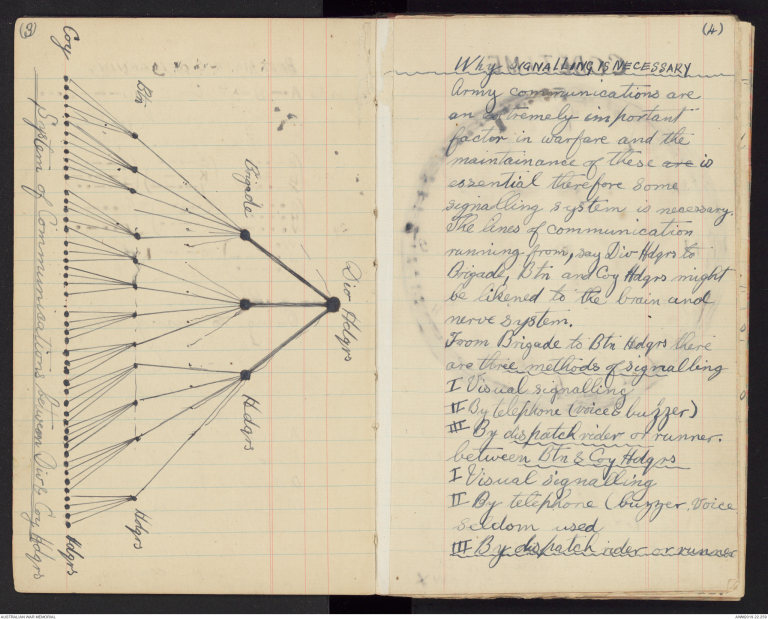 (3)
Coy
Btn
Brigade
Div Hdqrs
Hdqrs
Hdqrs
Hdqrs
System of Communications between Div & Coy Hdqrs
(4)
Why SIGNALLING IS NECESSARY
Army communications are
an extremely important
factor in warfare and the
maintainance of these are is
essential therefore some
signalling system is necessary.
The lines of communication
running from, say Div Hdqrs to
Brigade, Btn and Coy Hdqrs might
be likened to the brain and
nerve system.
From Brigade to Btn Hdqrs there
are three methods of signalling
I Visual signalling
II By telephone (voice & buzzer)
III By dispatch rider or runner.
between Btn & Coy Hdqrs
I Visual signalling
II By telephone (buzzer, voice
seldom used
III By dispatch rider or runner
AUSTRALIAN WAR MEMORIAL
AWM2019.22.259